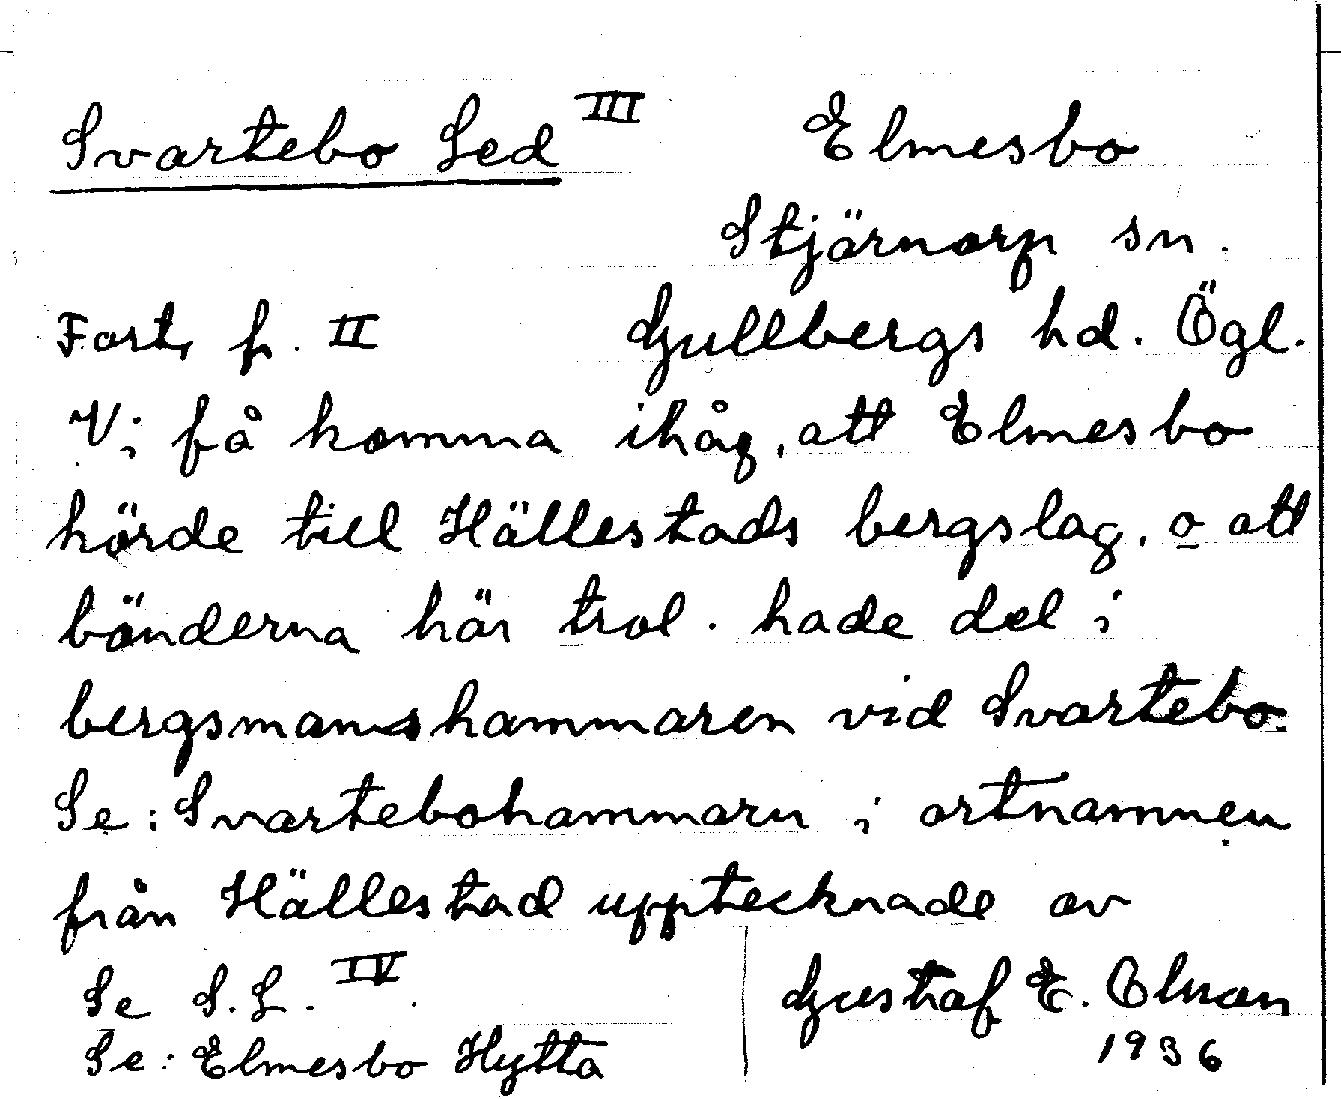 Svartebo Led III Elmesbo
Stjärnorp sn.
Fort, f. II Gullbergs hd. Ögl.
Vi få komma ihåg, att Elmesbo
hörde till Hällestads bergslag, o att
bönderna här trol. hade del i
bergsmanshammaren vid Svartebo.
Se: Svartebohammarn i ortnamnen
från Hällestad upptecknade av
Se S.L. IV. Gustaf E. Olman
Se: Elmesbo Hytta 1936